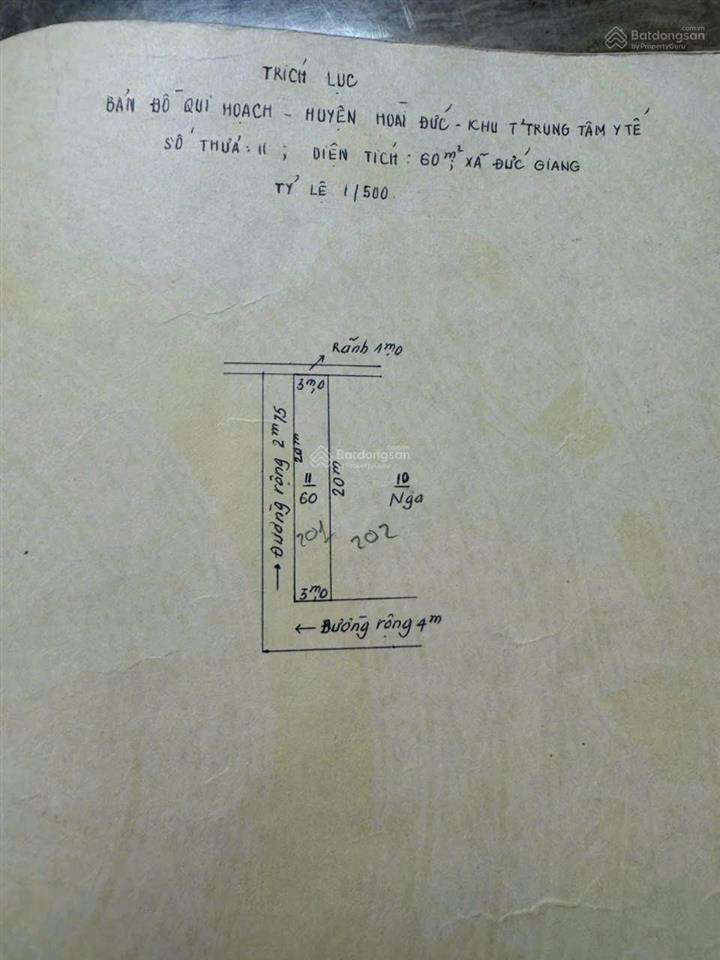 Batdongsan
.com.vn
by PropertyGuru
TRÍCH LỤC
BẢN ĐỒ QUI HOẠCH - HUYỆN HOÀI ĐỨC - KHU TT TRUNG TÂM Y TẾ
SỐ THỬA: 11 ; DIỆN TÍCH: 60m²; XÃ ĐỨC GIANG
TỶ LỆ 1/500
Rãnh 1m,0
3m,0
→ Đường rộng 2m,5
20m
20m
11
60
10
Nga
201
202
3m,0
← Đường rộng 4m
Batdongsan
.com.vn
by PropertyGuru